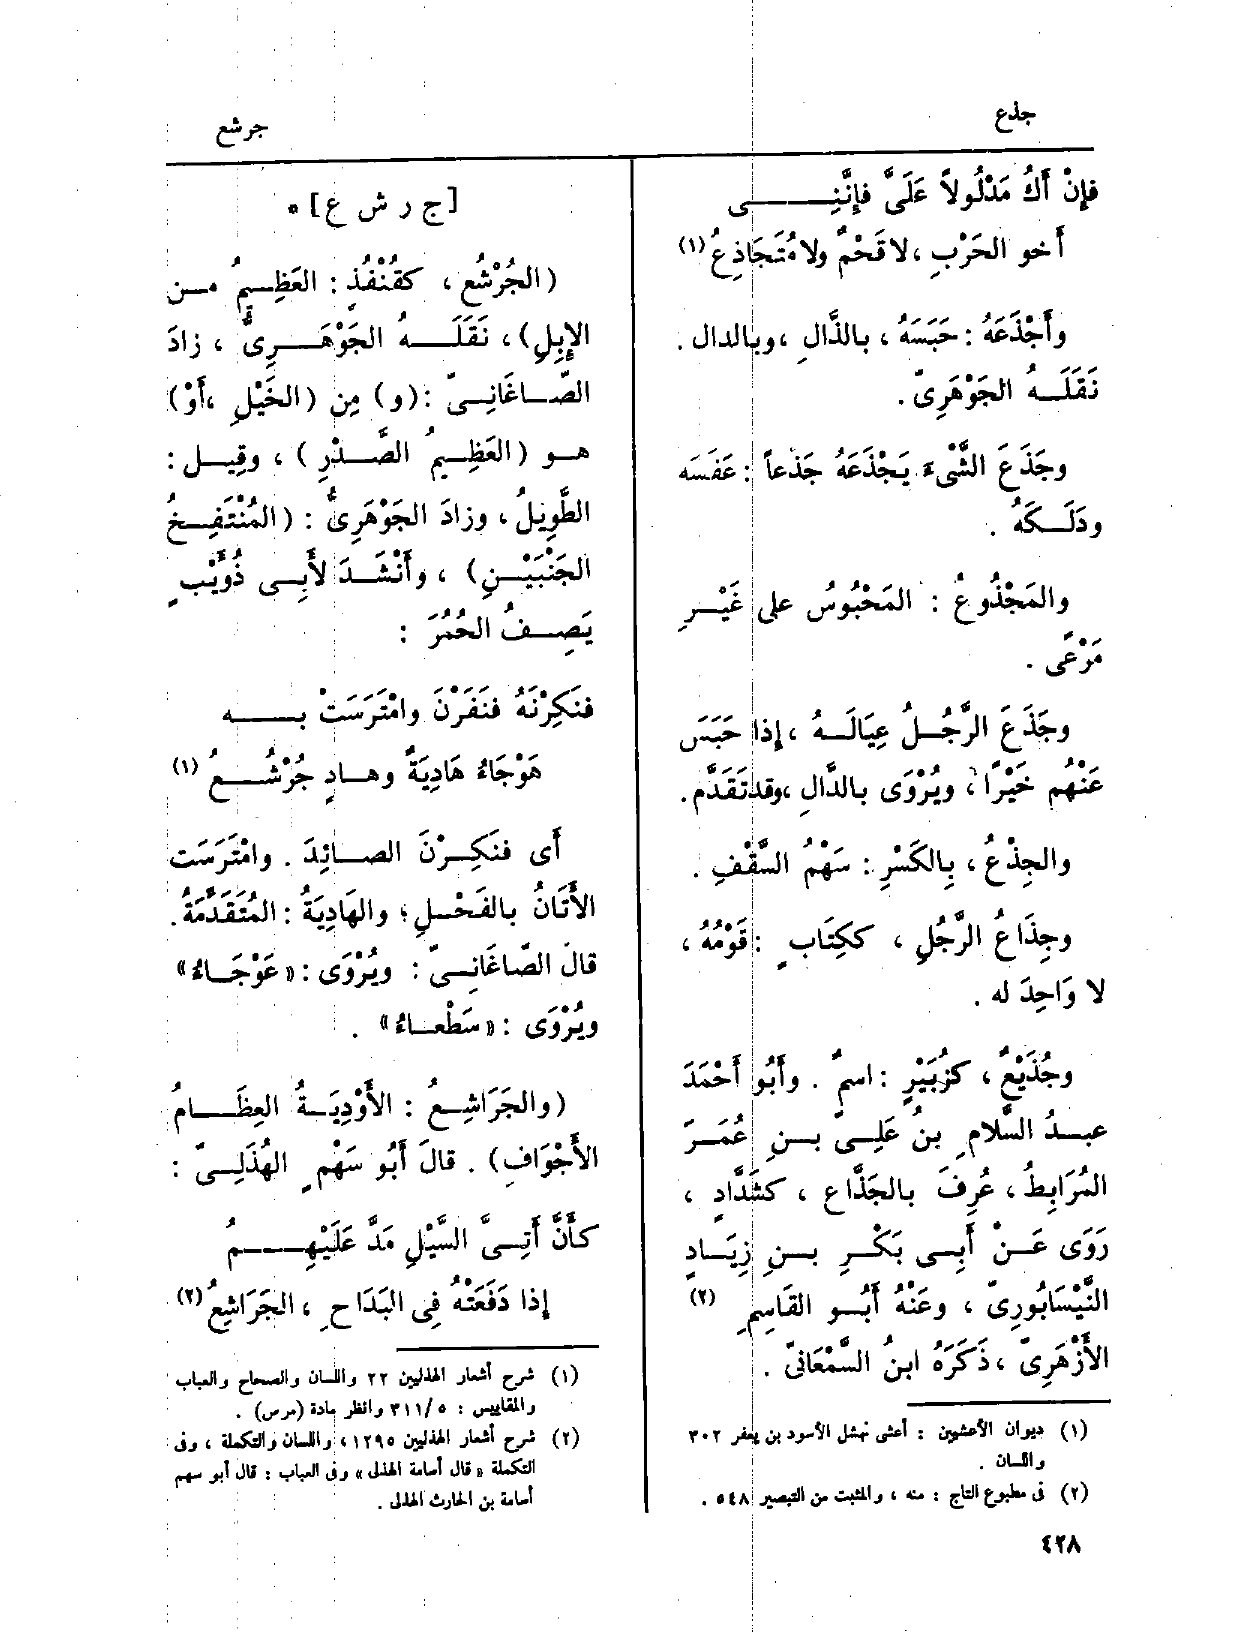 جذع
جرشع
فإِنْ أَكُ مَدْلُولاً عَلَىَّ فإِنَّنِــــى
أَخو الحَرْبِ ، لا قَحْمٌ ولا مُتَجَاذِعُ (١)
وأَجْذَعَهُ : حَبَسَهُ ، بالذَّالِ ، وبالدال .
نَقَلَــهُ الجَوْهَرِىّ .
وجَذَعَ الشَّىْءَ يَجْذَعَهُ جَذعاً : عَفَسَه
ودَلَــكَهُ .
والمَجْذُوعُ : المَحْبُوسُ على غَيْــرِ
مَرْعًى .
وجَذَعَ الرَّجُــلُ عِيَالَــهُ ، إذا حَبَسَ
عَنْهُم خَيْرًا ، ويُرْوَى بالدَّالِ ، وقد تَقَدَّم .
والجِذْعُ ، بِالكَسْرِ : سَهْمُ السَّقْفِ .
وجِذَاعُ الرَّجُلِ ، ككِتَابٍ : قَوْمُهُ ،
لا وَاحِدَ له .
وجُذَيْعٌ ، كزُبَيْرٍ : اسمٌ . وأَبُو أَحْمَدَ
عبــدُ السَّلامِ بنُ عَلِــىّ بــنِ عُمَــرَ
المُرَابِطُ ، عُرِفَ بالجَذَّاع ، كشَدَّادٍ ،
رَوَى عَــنْ أَبِــى بَكْــرِ بــنِ زِيَــادٍ
النَّيْسَابُورِىّ ، وعَنْهُ أَبُــو القَاسِمِ (٢)
الأَزْهَرِىّ ، ذَكَرَهُ ابنُ السَّمْعَانىّ .
(١) ديوان الأعشيين : أعشى نهشل الأسود بن يعفر ٣٠٢
واللسان .
(٢) فى مطبوع التاج : منه ، والمثبت من التبصير ٥٤٨ .
[ج ر ش ع] *
(الجُرْشُع ، كقُنْفُذٍ : العَظِــيمُ مــن
الإِبِلِ) ، نَقَلَــهُ الجَوْهَــرِىُّ ، زادَ
الصّــاغَانِــىّ : (و) مِن (الخَيْلِ ، أَوْ)
هــو (العَظِــيمُ الصَّــدْرِ) ، وقِيــل :
الطَّوِيلُ ، وزادَ الجَوْهَرِىُّ : (المُنْتَفِــخُ
الجَنْبَيْــنِ) ، وأَنْشَــدَ لأَبِــى ذُؤَيْبٍ
يَصِــفُ الحُمُرَ :
فنَكِرْنَهُ فنَفَرْنَ وامْتَرَسَتْ بــــه
هَوْجَاءُ هَادِيَةٌ وهــادٍ جُرْشُــعُ (١)
أَى فنَكِــرْنَ الصــائِدَ . وامْتَرَسَت
الأَتَانُ بالفَحْــلِ ؛ والهَادِيَةُ : المُتَقَدَّمَةُ .
قالَ الصّاغَانِــىّ : ويُرْوَى : «عَوْجَــاءُ»
ويُرْوَى : «سَطْعــاءُ» .
(والجَرَاشِــعُ : الأَوْدِيَــةُ العِظَــامُ
الأَجْوَافِ) . قالَ أَبُو سَهْمٍ الهُذَلِــىّ :
كأَنَّ أَتِــىَّ السَّيْلِ مَدَّ عَلَيْهِــــمُ
إذا دَفَعَتْهُ فِى البَدَاحِ ، الجَرَاشِعُ (٢)
(١) شرح أشعار الهذليين ٢٢ واللسان والصحاح والعباب
والمقاييس : ٣١١/٥ وانظر مادة (مرس) .
(٢) شرح أشعار الهذليين ١٢٩٥ ، واللسان والتكملة ، وفى
التكملة «قال أسامة الهذلى» وفى العباب : قال أبو سهم
أسامة بن الحارث الهذلى .
٤٢٨